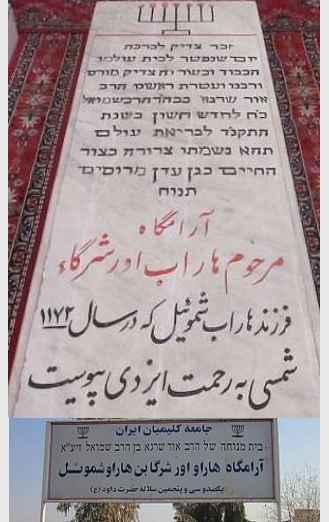 זכר צדיק לברכה
יום שנפטר לבית עולמו
הכבוד ובשר וה צדיק מורם
ורבנו ועטרת ראשנו הרב
אור שרגא בכהרהר שמואל
כח לחדש חשון בשנת
התקנד לבריאת עולם
תהא נשמתו צרורה בצור
החיים בגן עדן מרומים
תנוח
آرامگاه
مرحوم هاراب اور شرگاء
فرزند هاراب شموئیل که در سال ۱۱۷۲
شمسی به رحمت ایزدی پیوست
جامعه کلیمیان ایران
בית מנוחה של הרב אור שרגא בן הרב שמואל זיע״א
آرامگاه هاراو اور شرگا بن هاراو شموئل
یکصدو سی و پنجمین سلاله حضرت داود (ع)